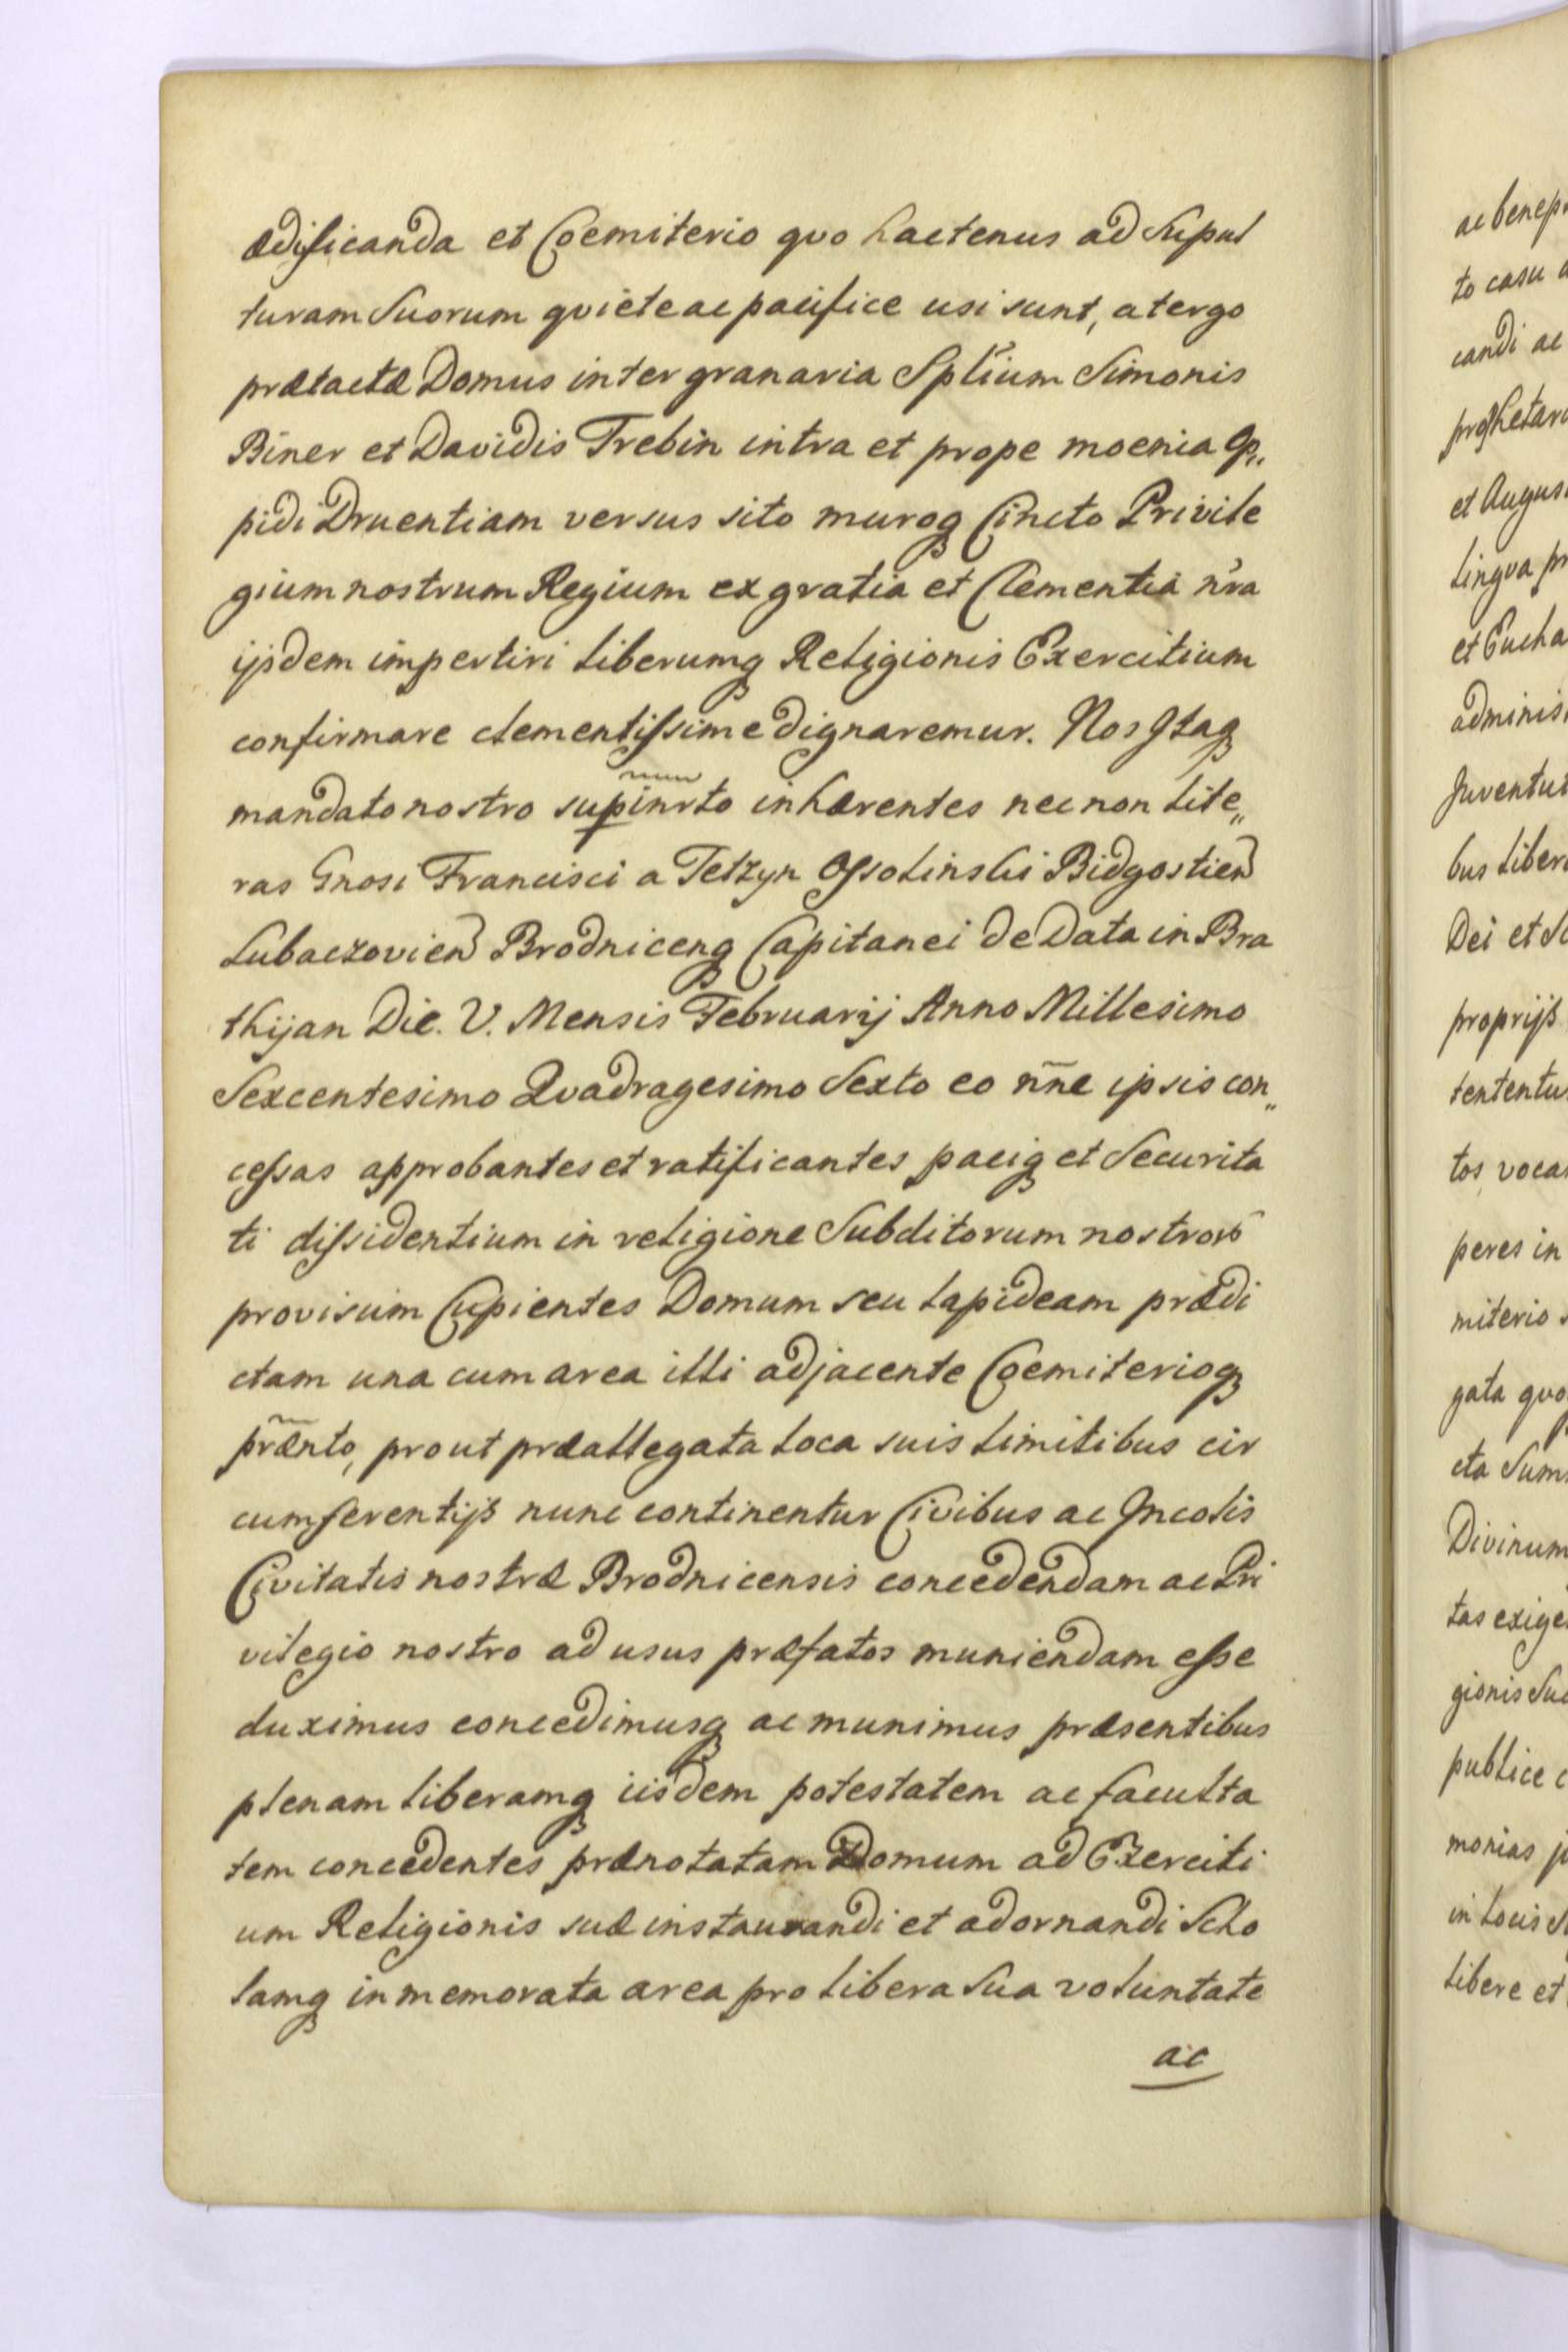 ædificanda et Coemiterio qvo hactenus ad Supul
turam Suorum qviete ac pacifice usi sunt, a tergo
prætactæ Domus inter granaria Splium Simonis
Biner et Davidis Trebin intra et prope moenia Op„
pidi Druentiam versus sito muroq Cincto Privile
gium nostrum Regium ex gratia et Clementia nra
ijsdem impertiri liberumq Religionis Exercitium
confirmare clementissime dignaremur. Nos Itaq
mandato nostro supinrto inhærentes nec non lite„
ras Gnosi Francisci a Tetzyn Ossolinski Bidgostien
Lubaczovien Brodniceng Capitanei de Data in Bra
thijan Die. V. Mensis Februarij Anno Millesimo
Sexcentesimo Qvadragesimo Sexto eo nne ipsis con„
cessas approbantes et ratificantes paciq et Securita
ti dissidentium in religione Subditorum nostrorũ
provisum Cupientes Domum seu lapideam prædi
ctam una cum area illi adjacente Coemiterioq
prænto, prout præallegata loca suis limitibus cir
cumferentijs nunc continentur Civibus ac Incolis
Civitatis nostræ Brodnicensis concedendam ac Pri
vilegio nostro ad usus præfatos muniendam esse
duximus concedimusq ac munimus præsentibus
plenam liberamq iisdem potestatem ac faculta
tem concedentes prænotatam Domum ad Exerciti
um Religionis suæ instaurandi et adornandi Scho
lamq in memorata area pro libera Sua voluntate
ac
ac benep
to casu
candi ac
prophetar
et Augus
lingva pr
et Eucha
adminis
Juventut
bus liber
Dei et S
proprijs
tententu
tos voca
peres in
miterio
gata qvo
cta Sum
Divinum
tas exige
gionis Su
publice c
monias
in locis
libere et